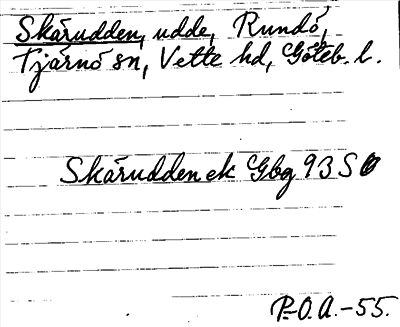 Skärudden, udde, Rundö,
Tjärnö sn, Vette hd, Göteb. l.
Skärudden ek Gbg 93 S
P.-O.A.-55.